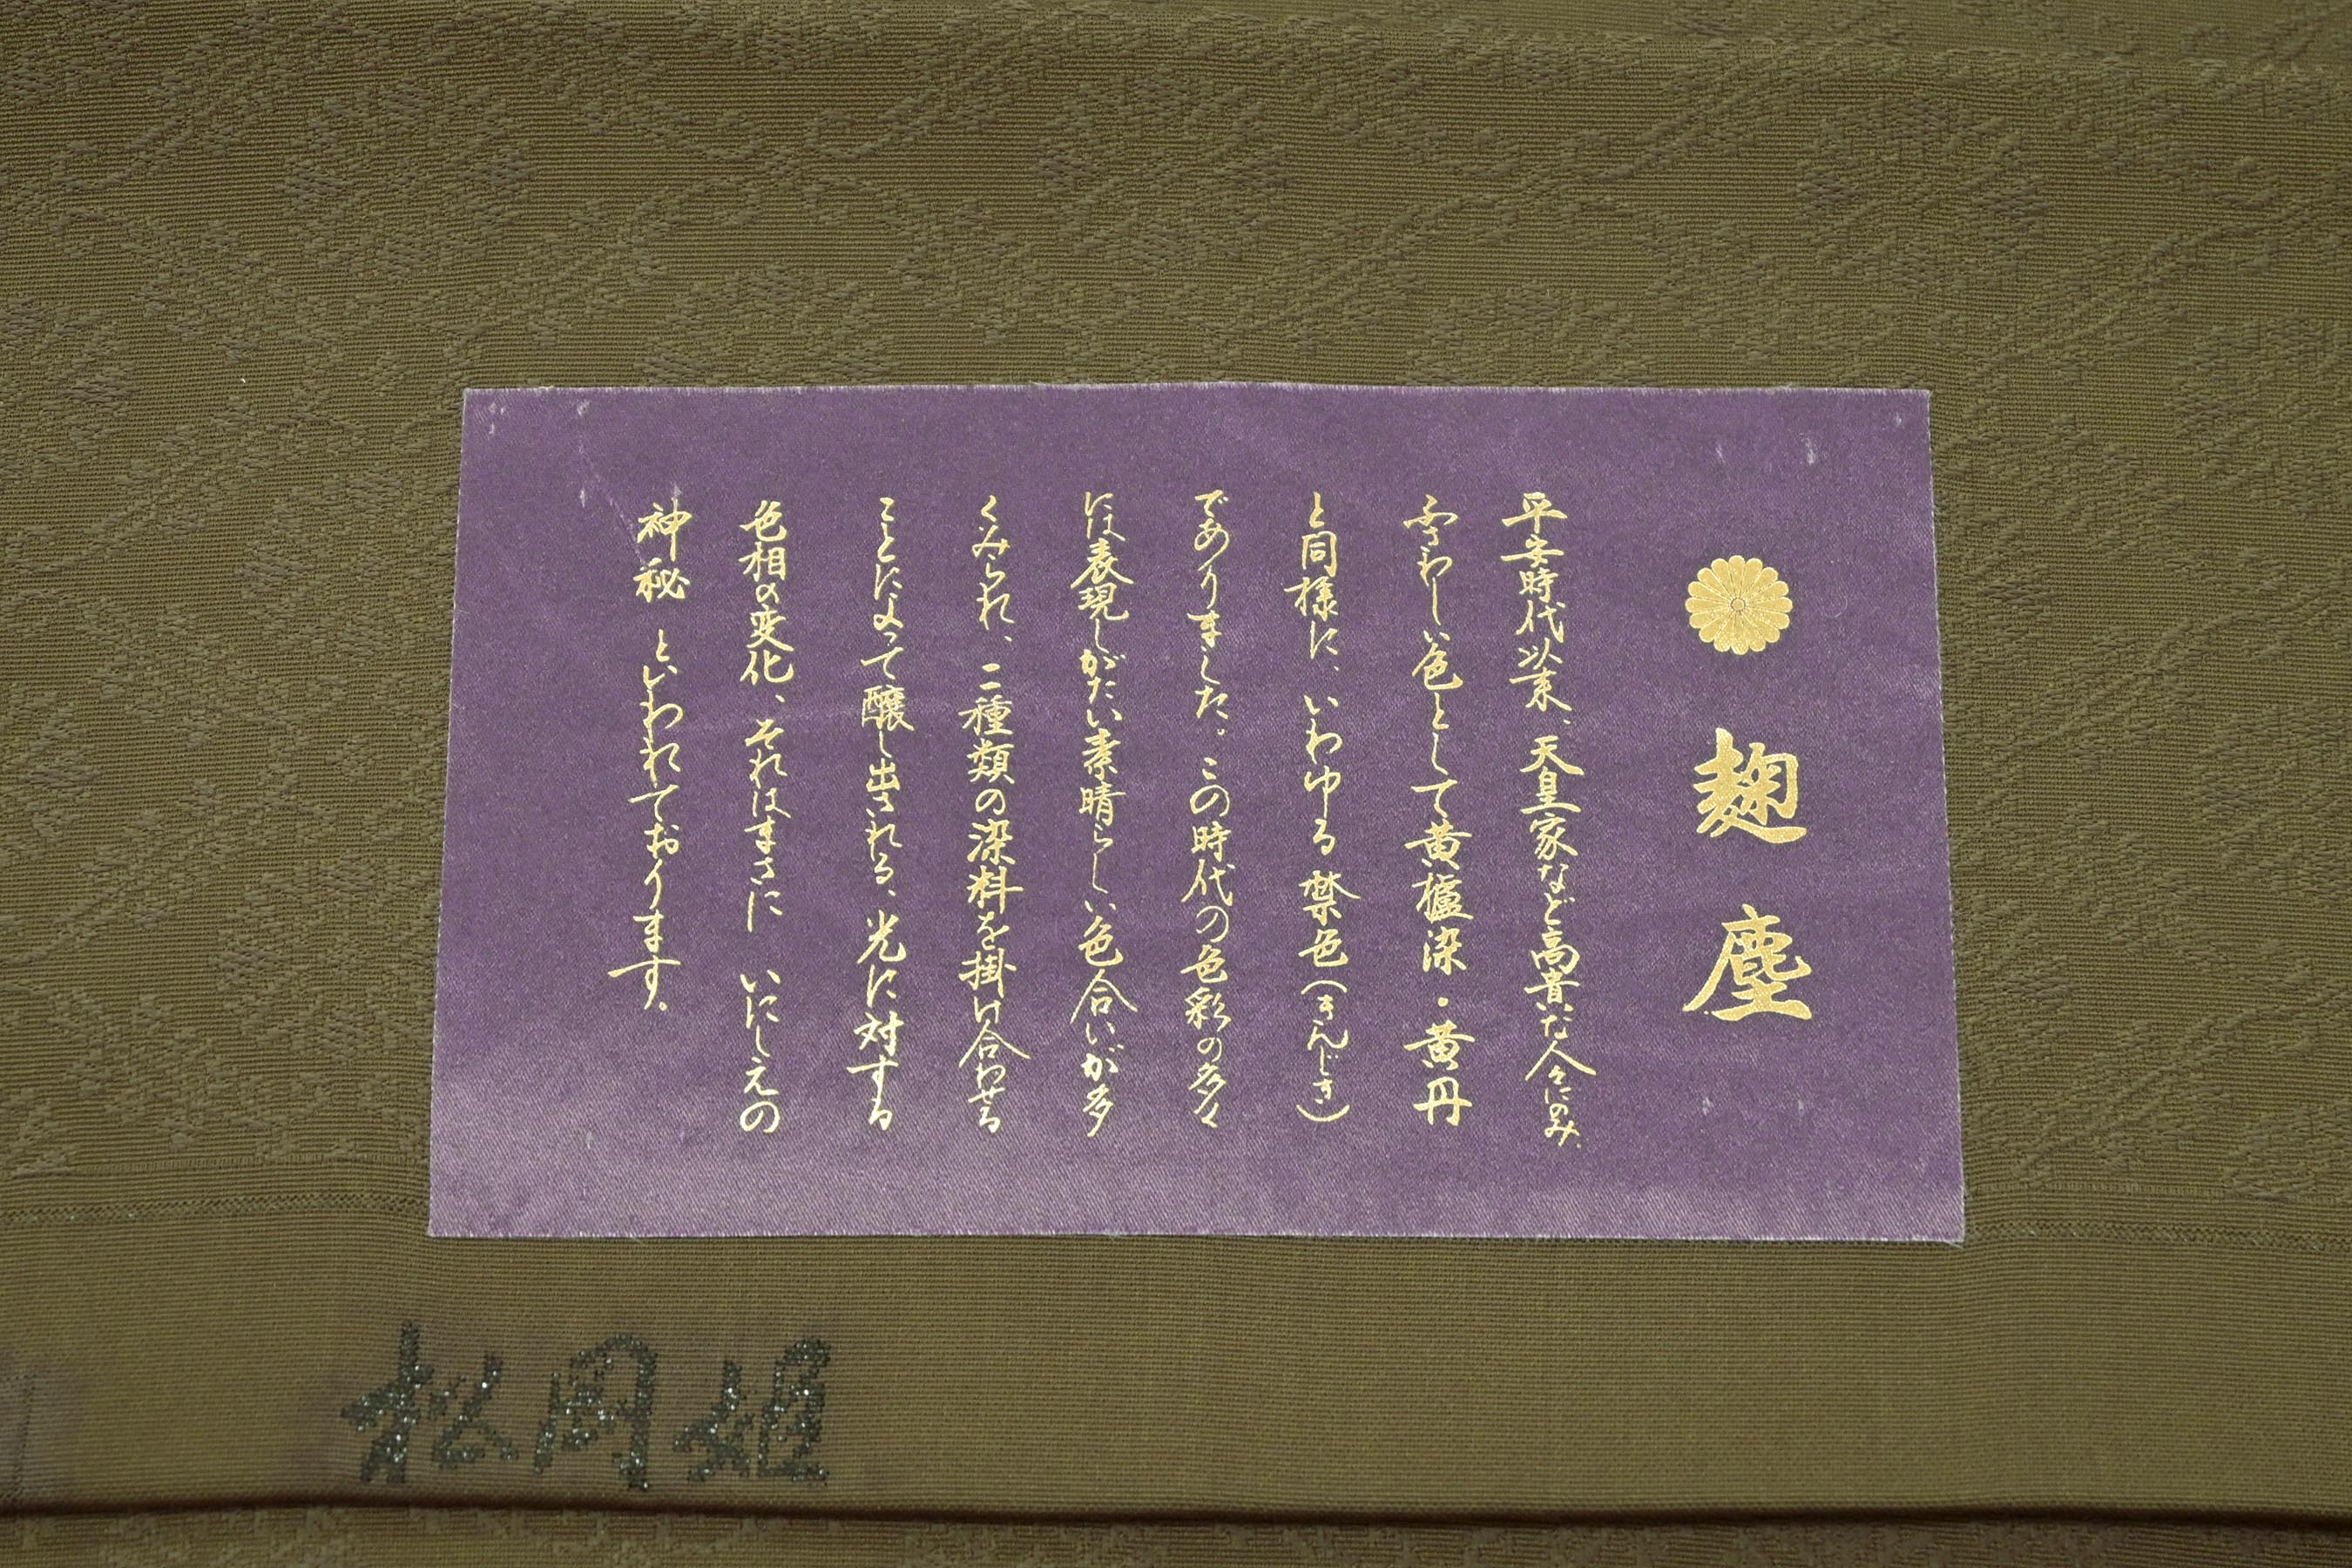 麹塵
平安時代以来、天皇家など高貴な人々にのみ
ふさわしい色として黄櫨染・黄丹
と同様に、いわゆる禁色（きんじき）
でありました。この時代の色彩の多々
には表現しがたい素晴らしい色合いが多
くみられ、二種類の染料を掛け合わせる
ことによって醸し出される、光に対する
色相の変化、それはまさに いにしえの
神秘 といわれております。
松岡姫